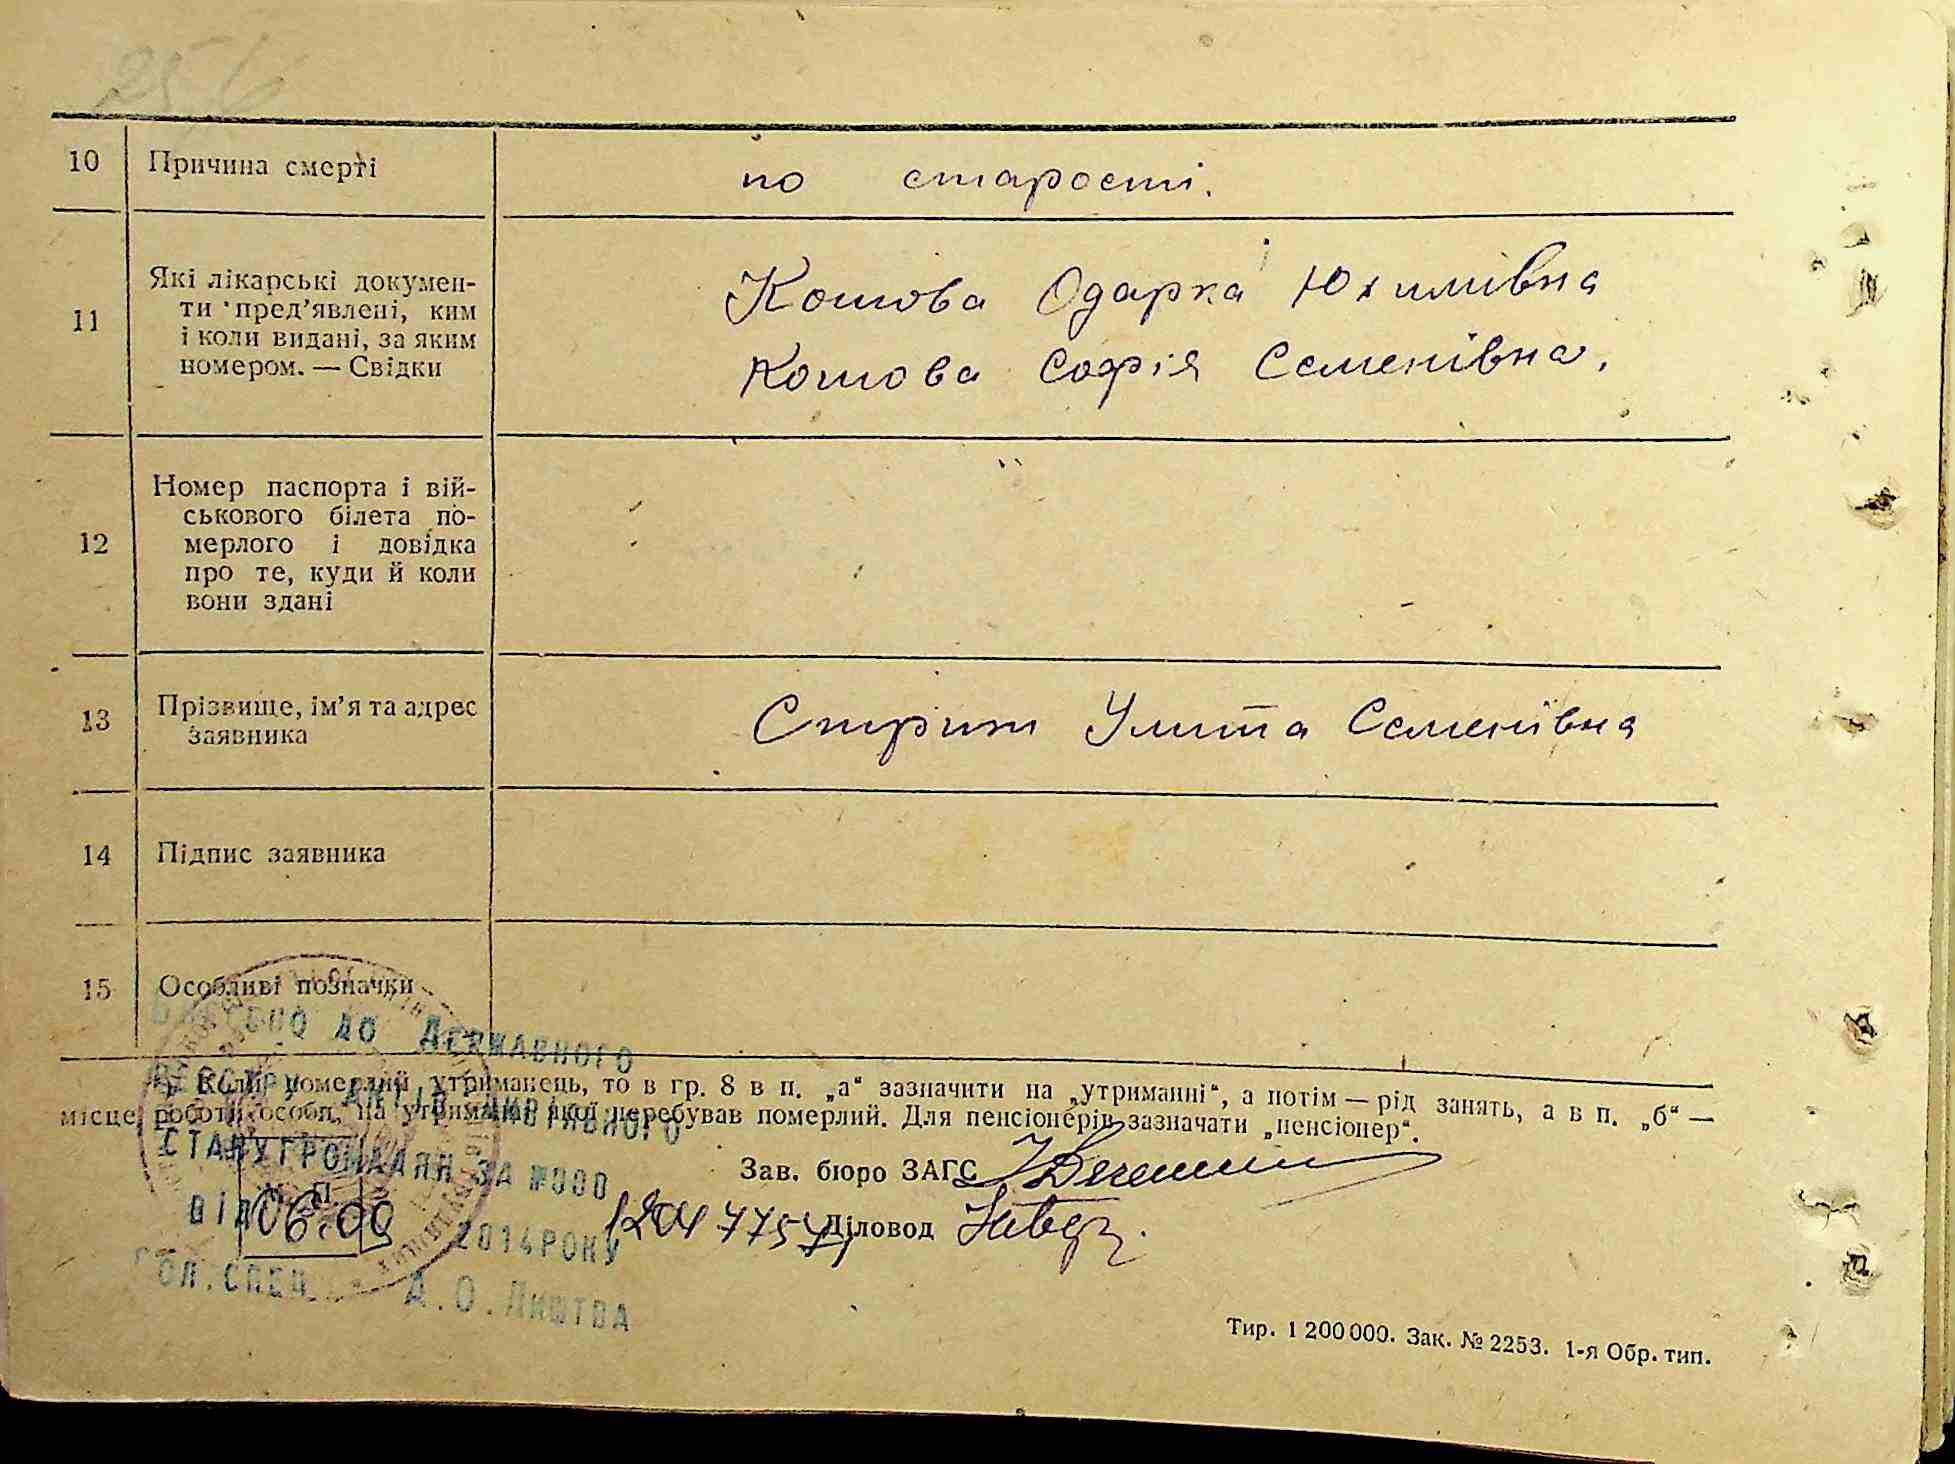 10 Причина смерті по старості.
11 Які лікарські докумен-
ти пред’явлені, ким
і коли видані, за яким
номером. — Свідки
Котова Одарка Юхимівна
Котова Софія Семенівна.
12 Номер паспорта і вій-
ськового білета по-
мерлого і довідка
про те, куди й коли
вони здані
13 Прізвище, ім’я та адрес
заявника
Стриж Улита Семенівна
14 Підпис заявника
15 Особливі позначки
ДО ДЕРЖАВНОГО
РЕЄСТРУ АКТІВ ЦИВІЛЬНОГО
СТАНУ ГРОМАДЯН ЗА №000
ВІД 06.06 2014 РОКУ
ГОЛ.СПЕЦ. А.О.ЛИШТВА
*) Коли померлий утриманець, то в гр. 8 в п. „а“ зазначити на „утриманні“, а потім — рід занять, а в п. „б“ —
місце роботи особи, на утриманні якої перебував померлий. Для пенсіонерів зазначати „пенсіонер“.
Зав. бюро ЗАГС
М. П.
Діловод
Тир. 1 200 000. Зак. № 2253. 1-я Обр. тип.